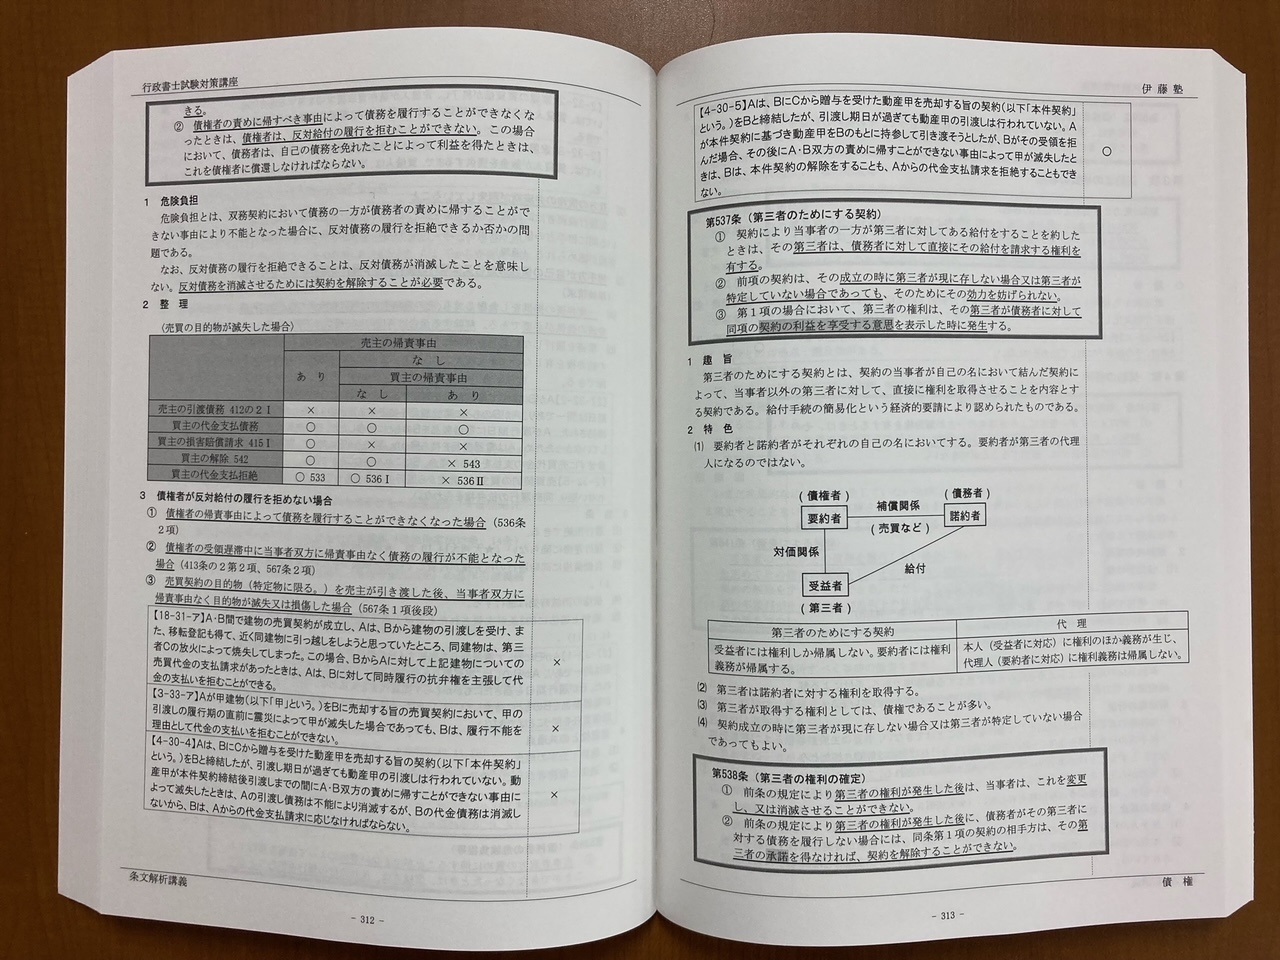 行政書士試験対策講座
きる。
② 債権者の責めに帰すべき事由によって債務を履行することができなくな
ったときは、債権者は、反対給付の履行を拒むことができない。この場合
において、債務者は、自己の債務を免れたことによって利益を得たときは、
これを債権者に償還しなければならない。
1 危険負担
危険負担とは、双務契約において債務の一方が債務者の責めに帰することがで
きない事由により不能となった場合に、反対債務の履行を拒絶できるか否かの問
題である。
なお、反対債務の履行を拒絶できることは、反対債務が消滅したことを意味し
ない。反対債務を消滅させるためには契約を解除することが必要である。
2 整 理
(売買の目的物が滅失した場合)
売主の帰責事由
あ り
な し
買主の帰責事由
な し
あ り
売主の引渡債務 412の2Ⅰ × × ×
買主の代金支払債務 ○ ○ ○
買主の損害賠償請求 415Ⅰ ○ × ×
買主の解除 542 ○ ○ × 543
買主の代金支払拒絶 ○ 533 ○ 536Ⅰ × 536Ⅱ
3 債権者が反対給付の履行を拒めない場合
① 債権者の帰責事由によって債務を履行することができなくなった場合(536条
2項)
② 債権者の受領遅滞中に当事者双方に帰責事由なく債務の履行が不能となった
場合(413条の2第2項、567条2項)
③ 売買契約の目的物(特定物に限る。)を売主が引き渡した後、当事者双方に
帰責事由なく目的物が滅失又は損傷した場合(567条1項後段)
【18-31-ア】A・B間で建物の売買契約が成立し、Aは、Bから建物の引渡しを受け、ま
た、移転登記も得て、近く同建物に引っ越しをしようと思っていたところ、同建物は、第三
者Cの放火によって焼失してしまった。この場合、BからAに対して上記建物についての
売買代金の支払請求があったときは、Aは、Bに対して同時履行の抗弁権を主張して代
金の支払いを拒むことができる。
×
【3-33-ア】Aが甲建物(以下「甲」という。)をBに売却する旨の売買契約において、甲の
引渡しの履行期の直前に震災によって甲が滅失した場合であっても、Bは、履行不能を
理由として代金の支払いを拒むことができない。
×
【4-30-4】Aは、BにCから贈与を受けた動産甲を売却する旨の契約(以下「本件契約」
という。)をBと締結したが、引渡し期日が過ぎても動産甲の引渡しは行われていない。動
産甲が本件契約締結後引渡しまでの間にA・B双方の責めに帰すことができない事由に
よって滅失したときは、Aの引渡し債務は不能により消滅するが、Bの代金債務は消滅し
ないから、Bは、Aからの代金支払請求に応じなければならない。
×
条文解析講義
- 312 -
伊 藤 塾
【4-30-5】Aは、BにCから贈与を受けた動産甲を売却する旨の契約(以下「本件契約」
という。)をBと締結したが、引渡し期日が過ぎても動産甲の引渡しは行われていない。A
が本件契約に基づき動産甲をBのもとに持参して引き渡そうとしたが、Bがその受領を拒
んだ場合、その後にA・B双方の責めに帰すことができない事由によって甲が滅失したと
きは、Bは、本件契約の解除をすることも、Aからの代金支払請求を拒絶することもでき
ない。
○
第537条(第三者のためにする契約)
① 契約により当事者の一方が第三者に対してある給付をすることを約した
ときは、その第三者は、債務者に対して直接にその給付を請求する権利を
有する。
② 前項の契約は、その成立の時に第三者が現に存しない場合又は第三者が
特定していない場合であっても、そのためにその効力を妨げられない。
③ 第1項の場合において、第三者の権利は、その第三者が債務者に対して
同項の契約の利益を享受する意思を表示した時に発生する。
1 趣 旨
第三者のためにする契約とは、契約の当事者が自己の名において結んだ契約に
よって、当事者以外の第三者に対して、直接に権利を取得させることを内容とす
る契約である。給付手続の簡易化という経済的要請により認められたものである。
2 特 色
⑴ 要約者と諾約者がそれぞれの自己の名においてする。要約者が第三者の代理
人になるのではない。
(債権者)
要約者
補償関係
(売買など)
(債務者)
諾約者
対価関係
給付
受益者
(第三者)
第三者のためにする契約
代 理
受益者には権利しか帰属しない。要約者には権利
義務が帰属する。
本人(受益者に対応)に権利のほか義務が生じ、
代理人(要約者に対応)に権利義務は帰属しない。
⑵ 第三者は諾約者に対する権利を取得する。
⑶ 第三者が取得する権利としては、債権であることが多い。
⑷ 契約成立の時に第三者が現に存しない場合又は第三者が特定していない場合
であってもよい。
第538条(第三者の権利の確定)
① 前条の規定により第三者の権利が発生した後は、当事者は、これを変更
し、又は消滅させることができない。
② 前条の規定により第三者の権利が発生した後に、債務者がその第三者に
対する債務を履行しない場合には、同条第1項の契約の相手方は、その第
三者の承諾を得なければ、契約を解除することができない。
債 権
- 313 -